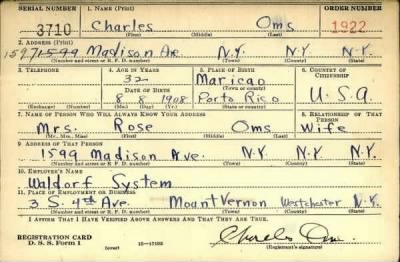 SERIAL NUMBER 1. NAME (Print) ORDER NUMBER
3710 Charles Oms 1922
(First) (Middle) (Last)
2. ADDRESS (Print)
1597 1599 Madison Ave N.Y. N.Y. N.Y.
(Number and street or R. F. D. number) (Town) (County) (State)
3. TELEPHONE 4. AGE IN YEARS 5. PLACE OF BIRTH 6. COUNTRY OF CITIZENSHIP
32 Maricao
DATE OF BIRTH (Town or county)
8 8 1908 Porto Rico U.S.A
(Exchange) (Number) (Mo.) (Day) (Yr.) (State or country)
7. NAME OF PERSON WHO WILL ALWAYS KNOW YOUR ADDRESS 8. RELATIONSHIP OF THAT PERSON
Mrs. Rose Oms Wife
(Mr., Mrs., Miss) (First) (Middle) (Last)
9. ADDRESS OF THAT PERSON
1599 Madison Ave. N.Y. N.Y. N.Y.
(Number and street or R. F. D. number) (Town) (County) (State)
10. EMPLOYER'S NAME
Waldorf System
11. PLACE OF EMPLOYMENT OR BUSINESS
3 S. 4th Ave. Mount Vernon Westchester N.Y.
(Number and street or R. F. D. number) (Town) (County) (State)
I AFFIRM THAT I HAVE VERIFIED ABOVE ANSWERS AND THAT THEY ARE TRUE.
REGISTRATION CARD
D. S. S. Form 1 (over) 16-17105 Charles Oms
(Registrant's signature)